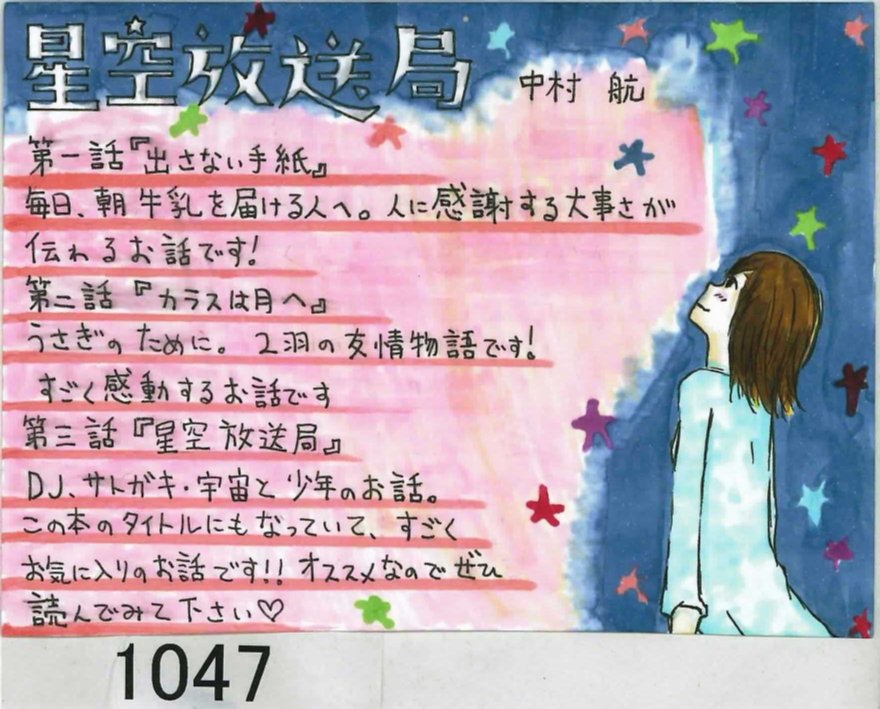 星空放送局
中村 航
第一話『出さない手紙』
毎日、朝牛乳を届ける人へ。人に感謝する大事さが
伝わるお話です!
第二話『カラスは月へ』
うさぎのために。2羽の友情物語です!
すごく感動するお話です
第三話『星空放送局』
DJ、サトガキ・宇宙と少年のお話。
この本のタイトルにもなっていて、すごく
お気に入りのお話です!!オススメなのでぜひ
読んでみて下さい♡
1047